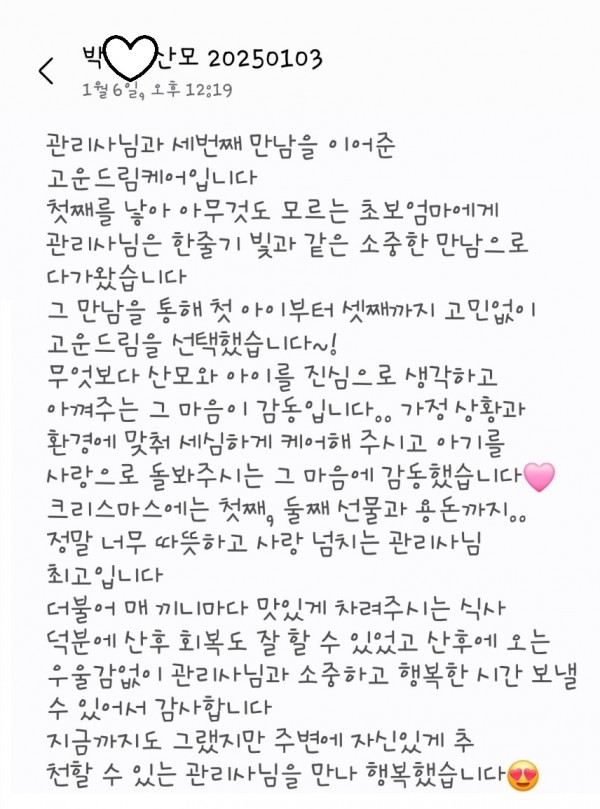 박 산모 20250103
1월 6일, 오후 12:19
관리사님과 세번째 만남을 이어준
고운드림케어입니다
첫째를 낳아 아무것도 모르는 초보엄마에게
관리사님은 한줄기 빛과 같은 소중한 만남으로
다가왔습니다
그 만남을 통해 첫 아이부터 셋째까지 고민없이
고운드림을 선택했습니다~!
무엇보다 산모와 아이를 진심으로 생각하고
아껴주는 그 마음이 감동입니다.. 가정 상황과
환경에 맞춰 세심하게 케어해 주시고 아기를
사랑으로 돌봐주시는 그 마음에 감동했습니다🩷
크리스마스에는 첫째, 둘째 선물과 용돈까지..
정말 너무 따뜻하고 사랑 넘치는 관리사님
최고입니다
더불어 매 끼니마다 맛있게 차려주시는 식사
덕분에 산후 회복도 잘 할 수 있었고 산후에 오는
우울감없이 관리사님과 소중하고 행복한 시간 보낼
수 있어서 감사합니다
지금까지도 그랬지만 주변에 자신있게 추
천할 수 있는 관리사님을 만나 행복했습니다😍